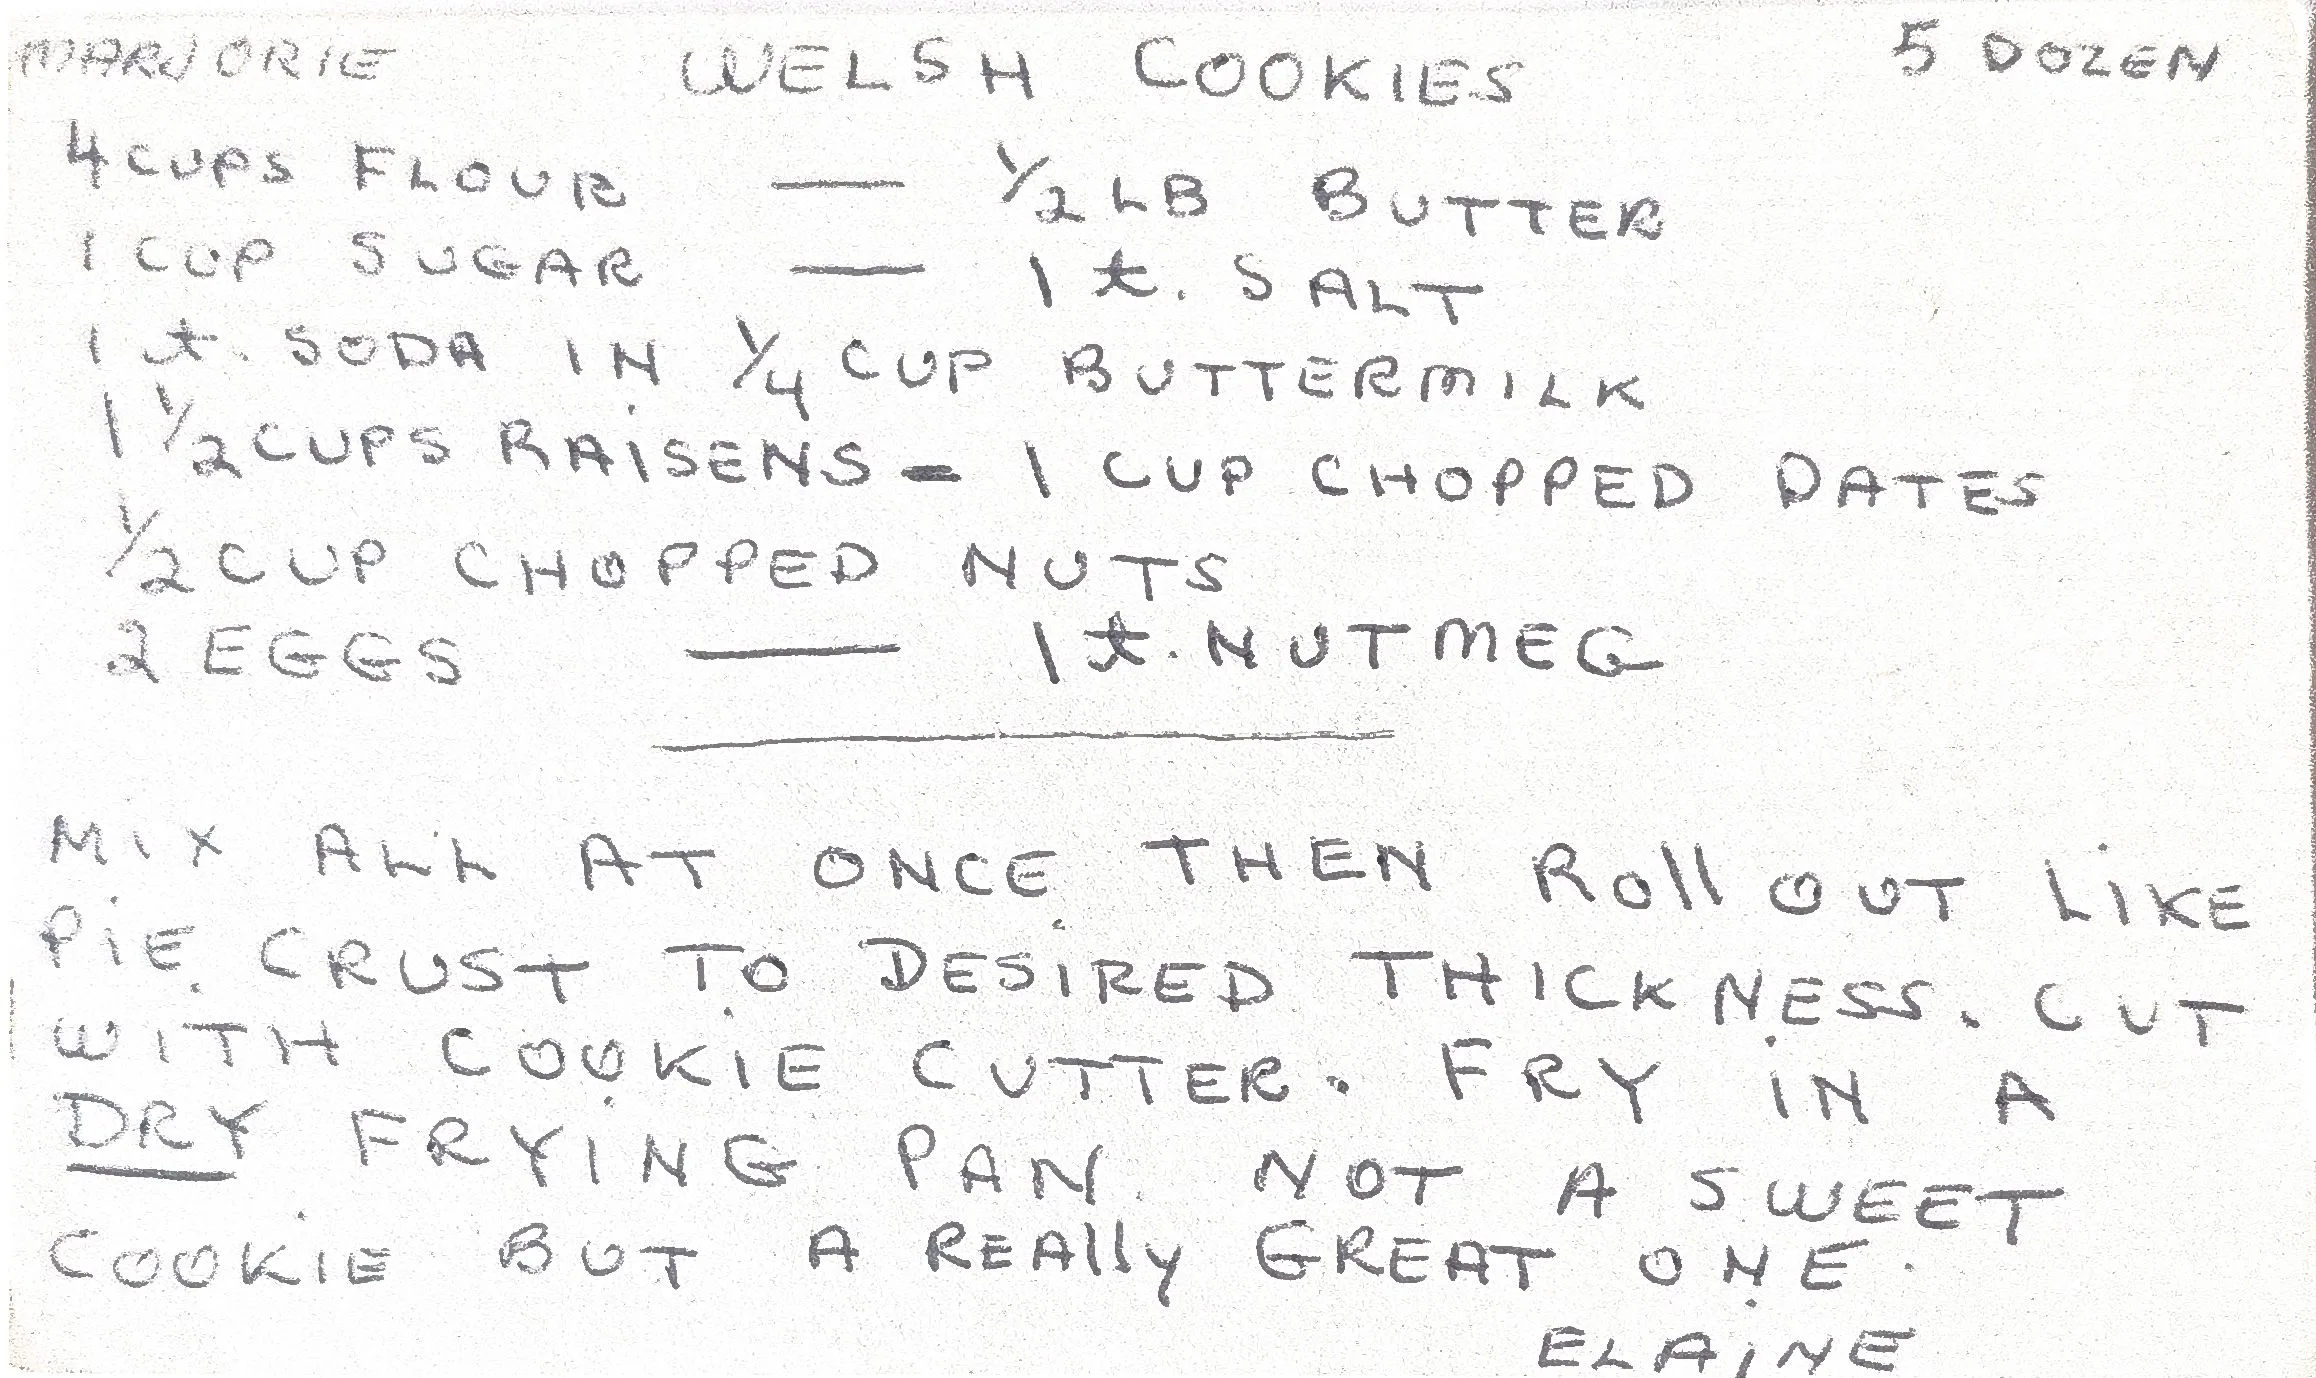 MARJORIE WELSH COOKIES 5 DOZEN
4 CUPS FLOUR — ½ LB BUTTER
1 CUP SUGAR — 1 t. SALT
1 t. SODA IN ¼ CUP BUTTERMILK
1 ½ CUPS RAISENS - 1 CUP CHOPPED DATES
½ CUP CHOPPED NUTS
2 EGGS — 1 t. NUTMEG
MIX ALL AT ONCE THEN ROll OUT LIKE
PIE CRUST TO DESIRED THICKNESS. CUT
WITH COOKIE CUTTER. FRY IN A
DRY FRYING PAN. NOT A SWEET
COOKIE BUT A REAlly GREAT ONE.
ELAINE